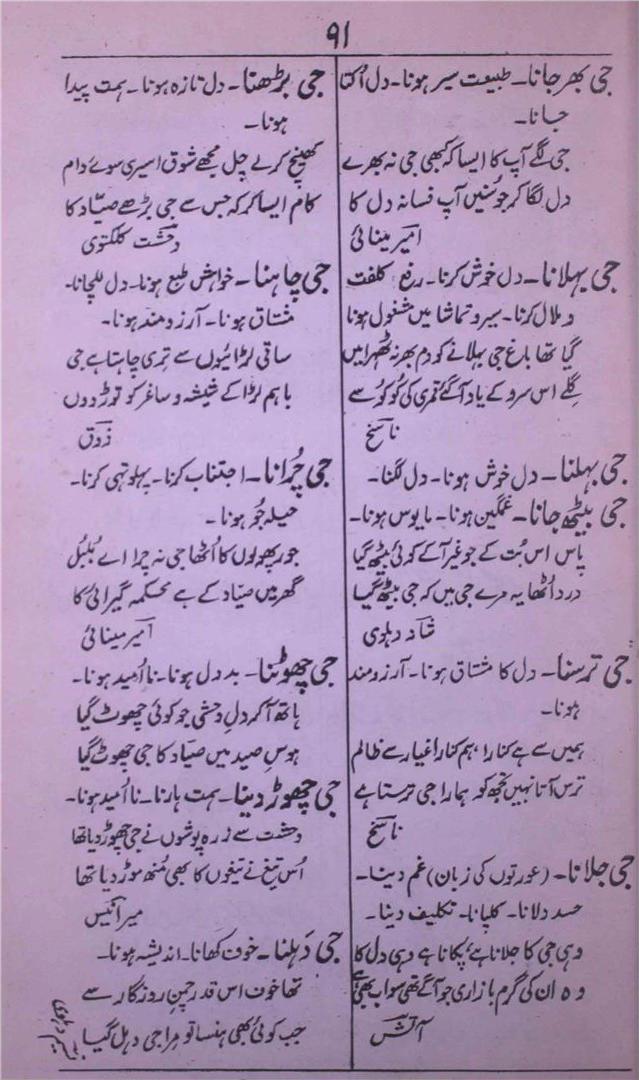 ۹۱
جی بھر جانا۔ طبیعت سیر ہونا۔ دل اُکتا
جانا۔
جی لگے آپ کا ایسا کہ کبھی جی نہ بھرے
دل لگا کر جو سُنیں آپ فسانہ دل کا
امیر مینائی
جی بہلانا۔ دل خوش کرنا۔ رفع کلفت
و ملال کرنا۔ سیر و تماشا میں مشغول ہونا
گیا تھا باغ جی بہلانے کو دم بھر نہ ٹھہرا میں
گلے اس سرو کے یاد آ گئے قمری کی کُو کُو سے
ناسخ
جی بہلنا۔ دل خوش ہونا۔ دل لگنا۔
جی بیٹھ جانا۔ غمگین ہونا۔ مایوس ہونا۔
پاس اس بُت کے جو غیر آ کے کوئی بیٹھ گیا
درد اُٹھا یہ مرے جی میں کہ جی بیٹھ گیا
شاد دہلوی
جی ترسنا۔ دل کا مشتاق ہونا۔ آرزو مند
ہونا۔
ہمیں سے ہے کنارا، ہم کنار اغیار سے ظالم
ترس آتا نہیں تجھ کو ہمارا جی ترستا ہے
ناسخ
جی جلانا۔ (عورتوں کی زبان) غم دینا۔
حسد دلانا۔ کلپانا۔ تکلیف دینا۔
وہی جی کا جلانا ہے پکانا ہے وہی دل کا
وہ ان کی گرم بازاری جو آگے تھی سو اب بھی ہے
آتش
جی بڑھنا۔ دل تازہ ہونا۔ ہمت پیدا
ہونا۔
کھینچ کر لے چل مجھے شوق اسیری سوئے دام
کام ایسا کر کہ جس سے جی بڑھے صیّاد کا
وحشت کلکتوی
جی چاہنا۔ خواہش طبع ہونا۔ دل للچانا۔
مشتاق ہونا۔ آرزو مند ہونا۔
ساقی لڑائیوں سے تری چاہتا ہے جی
باہم لڑا کے شیشہ و ساغر کو توڑ دوں
ذوق
جی چُرانا۔ اجتناب کرنا۔ پہلو تہی کرنا۔
حیلہ جُو ہونا۔
جور پھولوں کا اُٹھا جی نہ چرا اے بُلبُل
گھر میں صیّاد کے ہے محکمہ گیرائی کا
امیر مینائی
جی چھوٹنا۔ بد دل ہونا۔ نا اُمید ہونا۔
ہاتھ آ کر دلِ وحشی جو کوئی چھوٹ گیا
ہوس صید میں صیاد کا جی چھوٹ گیا
جی چھوڑ دینا۔ ہمت ہارنا۔ نا اُمید ہونا۔
وحشت سے زرہ پوشوں نے جی چھوڑ دیا تھا
اُس تیغ نے تیغوں کا بھی مُنھ موڑ دیا تھا
میر انیس
جی دَہلنا۔ خوف کھانا۔ اندیشہ ہونا۔
تھا خوف اس قدر چمنِ روزگار سے
جب کوئی بھی ہنسا تو مرا جی دہل گیا
نسیم دہلوی